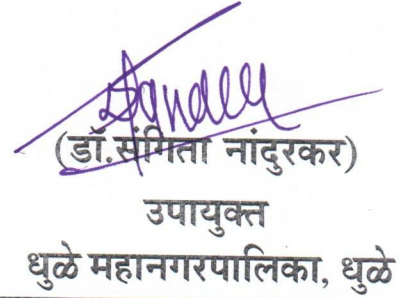 (डॉ.संगिता नांदुरकर)
उपायुक्त
धुळे महानगरपालिका, धुळे